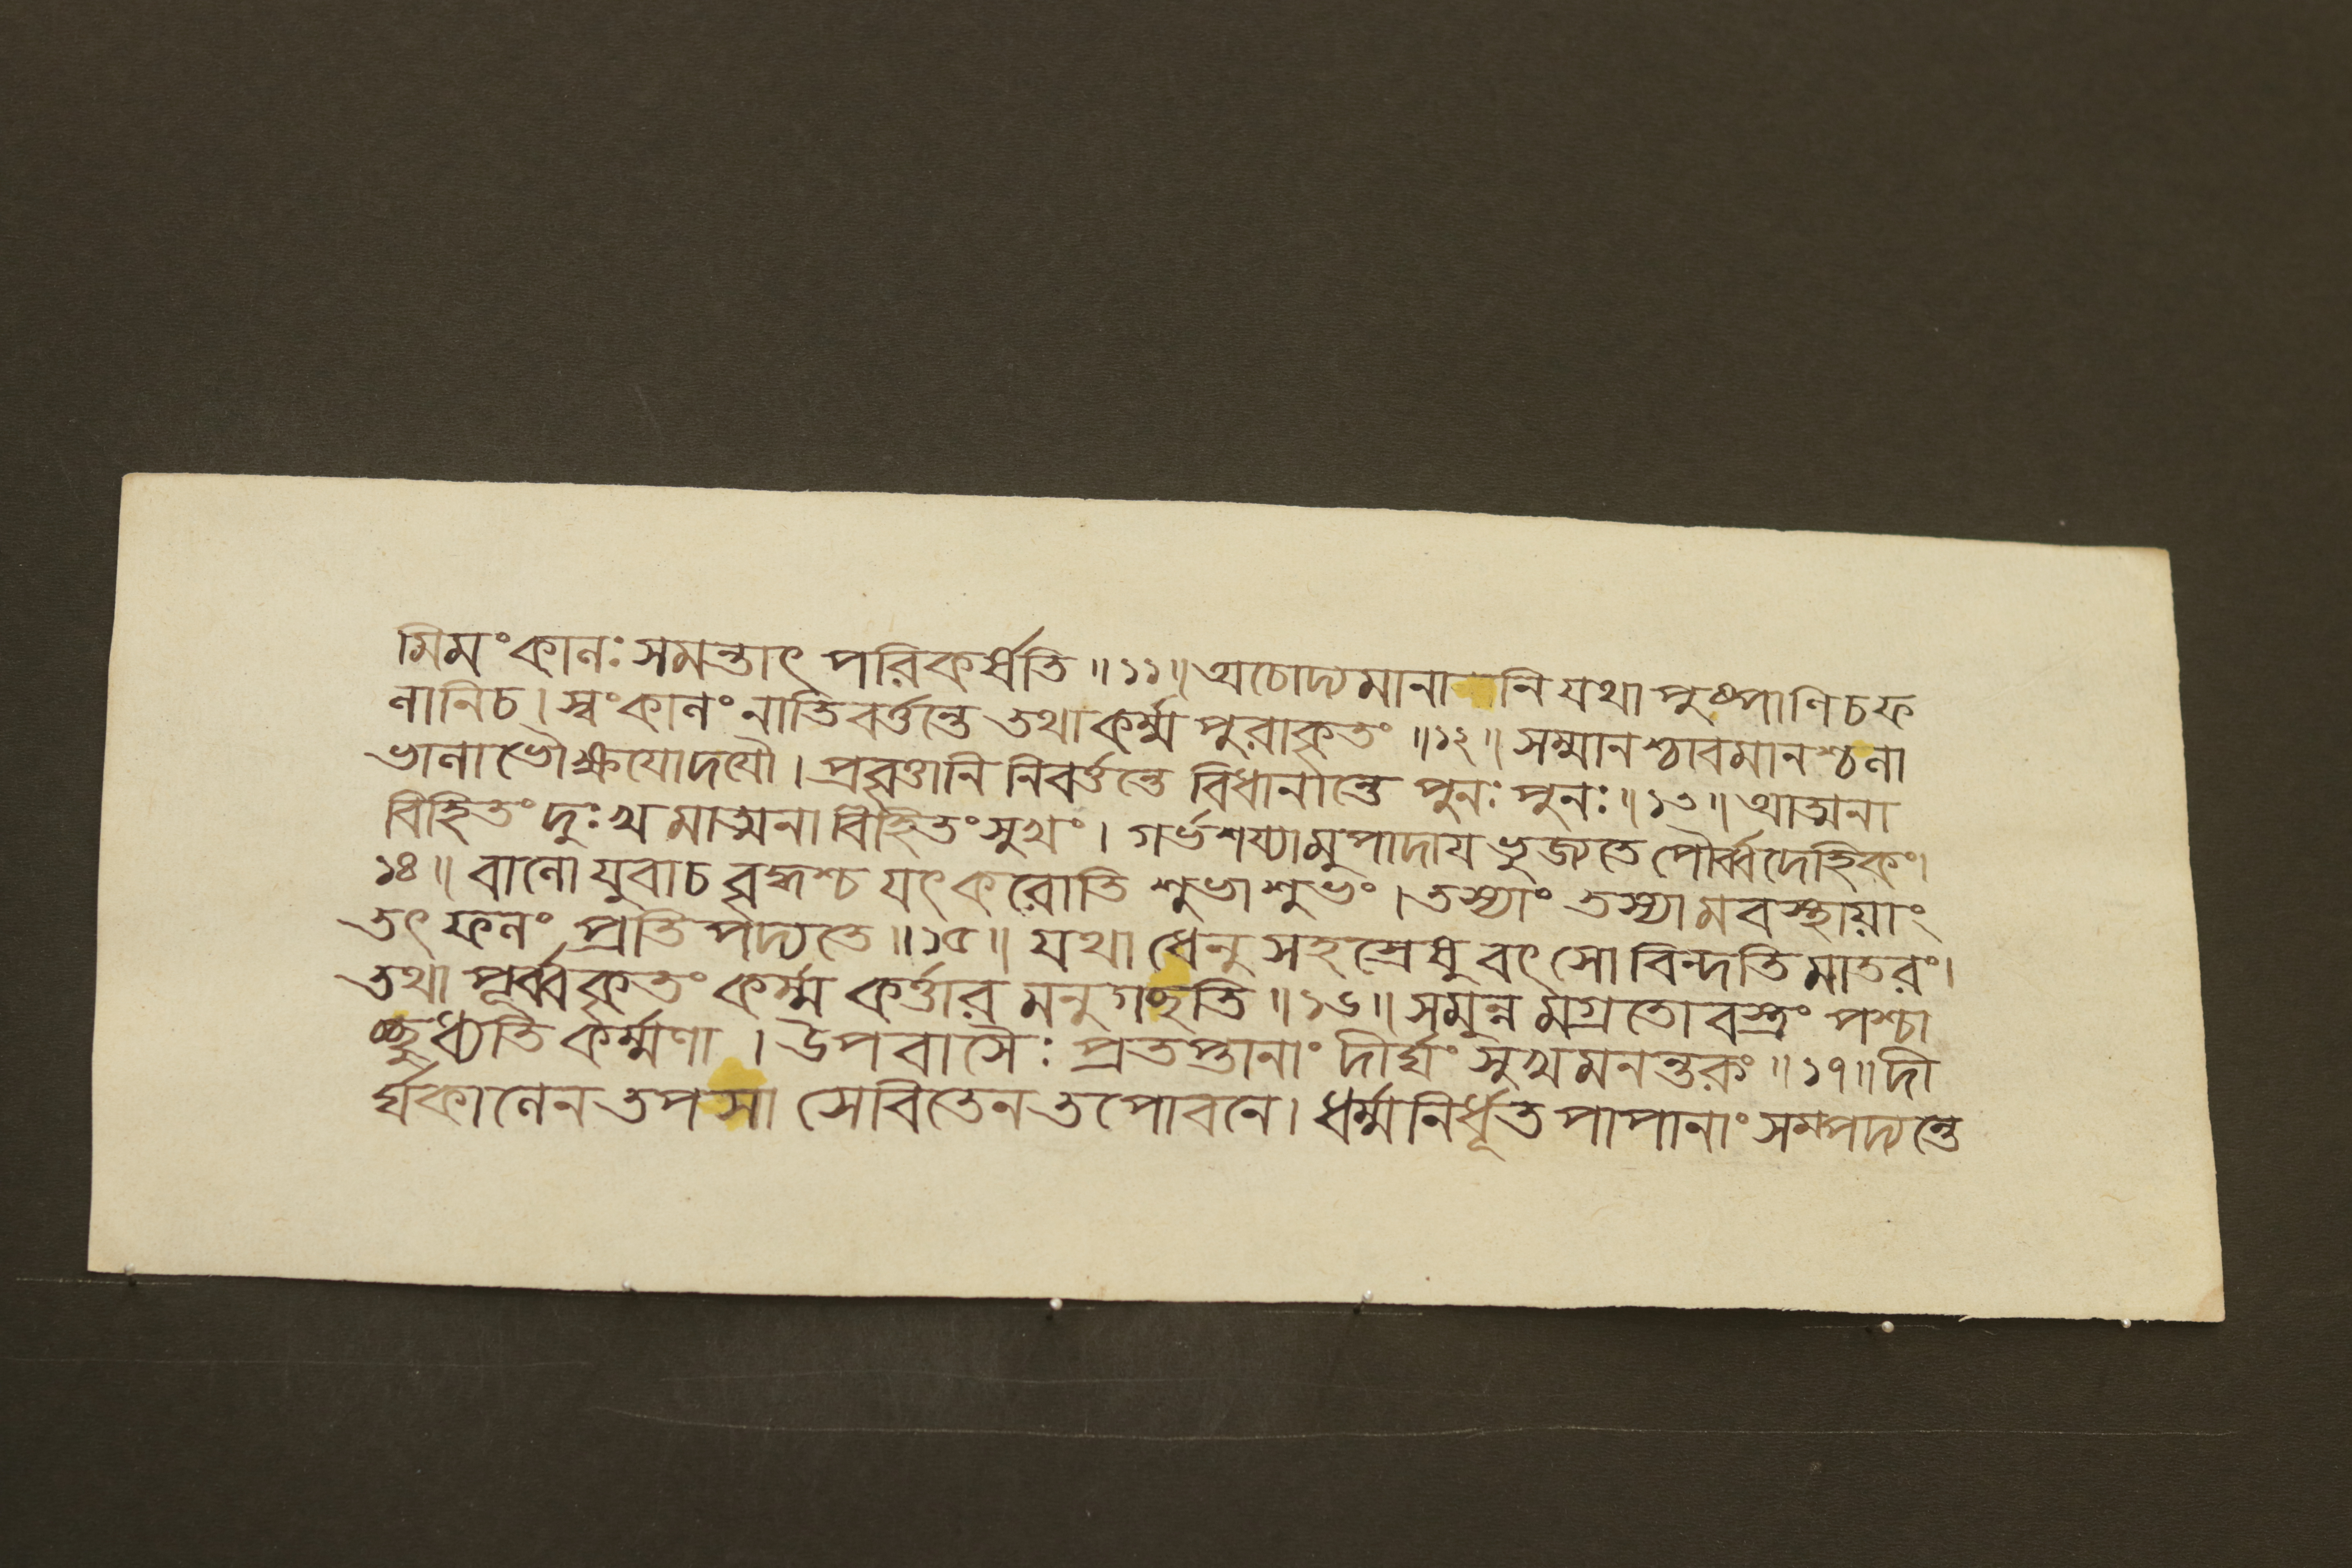 মিমংকালঃ সমন্তাৎ পরিকর্ষতি ॥১১॥ অচোদ্যমানানি যথা পুষ্পাণি চ ফ
লানি চ । স্বং কালং নাতিবর্ত্তন্তে তথা কর্ম্ম পুরাকৃতং ॥১২॥ সম্মানশ্চাবমানশ্চ লা
ভালাভৌ ক্ষয়োদয়ৌ । প্রবৃত্তানি নিবর্ত্তন্তে বিধানান্তে পুনঃ পুনঃ ॥১৩॥ আত্মনা
বিহিতং দুঃখমাত্মনা বিহিতং সুখং । গর্ভশয্যামুপাদায ভুজ্যতে পৌর্ব্বদেহিকং ।
১৪॥ বালো যুবা চ বৃদ্ধশ্চ যৎ করোতি শুভাশুভং । তস্যাং তস্যামবস্থায়াং
তৎ ফলং প্রতিপদ্যতে ॥১৫॥ যথা ধেনুসহস্রেষু বৎসো বিন্দতি মাতরং ।
তথা পূর্ব্বকৃতং কর্ম্ম কর্ত্তারমনুগচ্ছতি ॥১৬॥ সমুন্নমগ্রতো বস্ত্রং পশ্চা
চ্ছুধ্যতি কর্ম্মণা । উপবাসৈঃ প্রতপ্তানাং দীর্ঘং সুখমনন্তকং ॥১৭॥ দী
র্ঘকালেন তপসা সেবিতেন তপোবনে । ধর্ম্মনির্ধূতপাপানাং সম্পদ্যন্তে